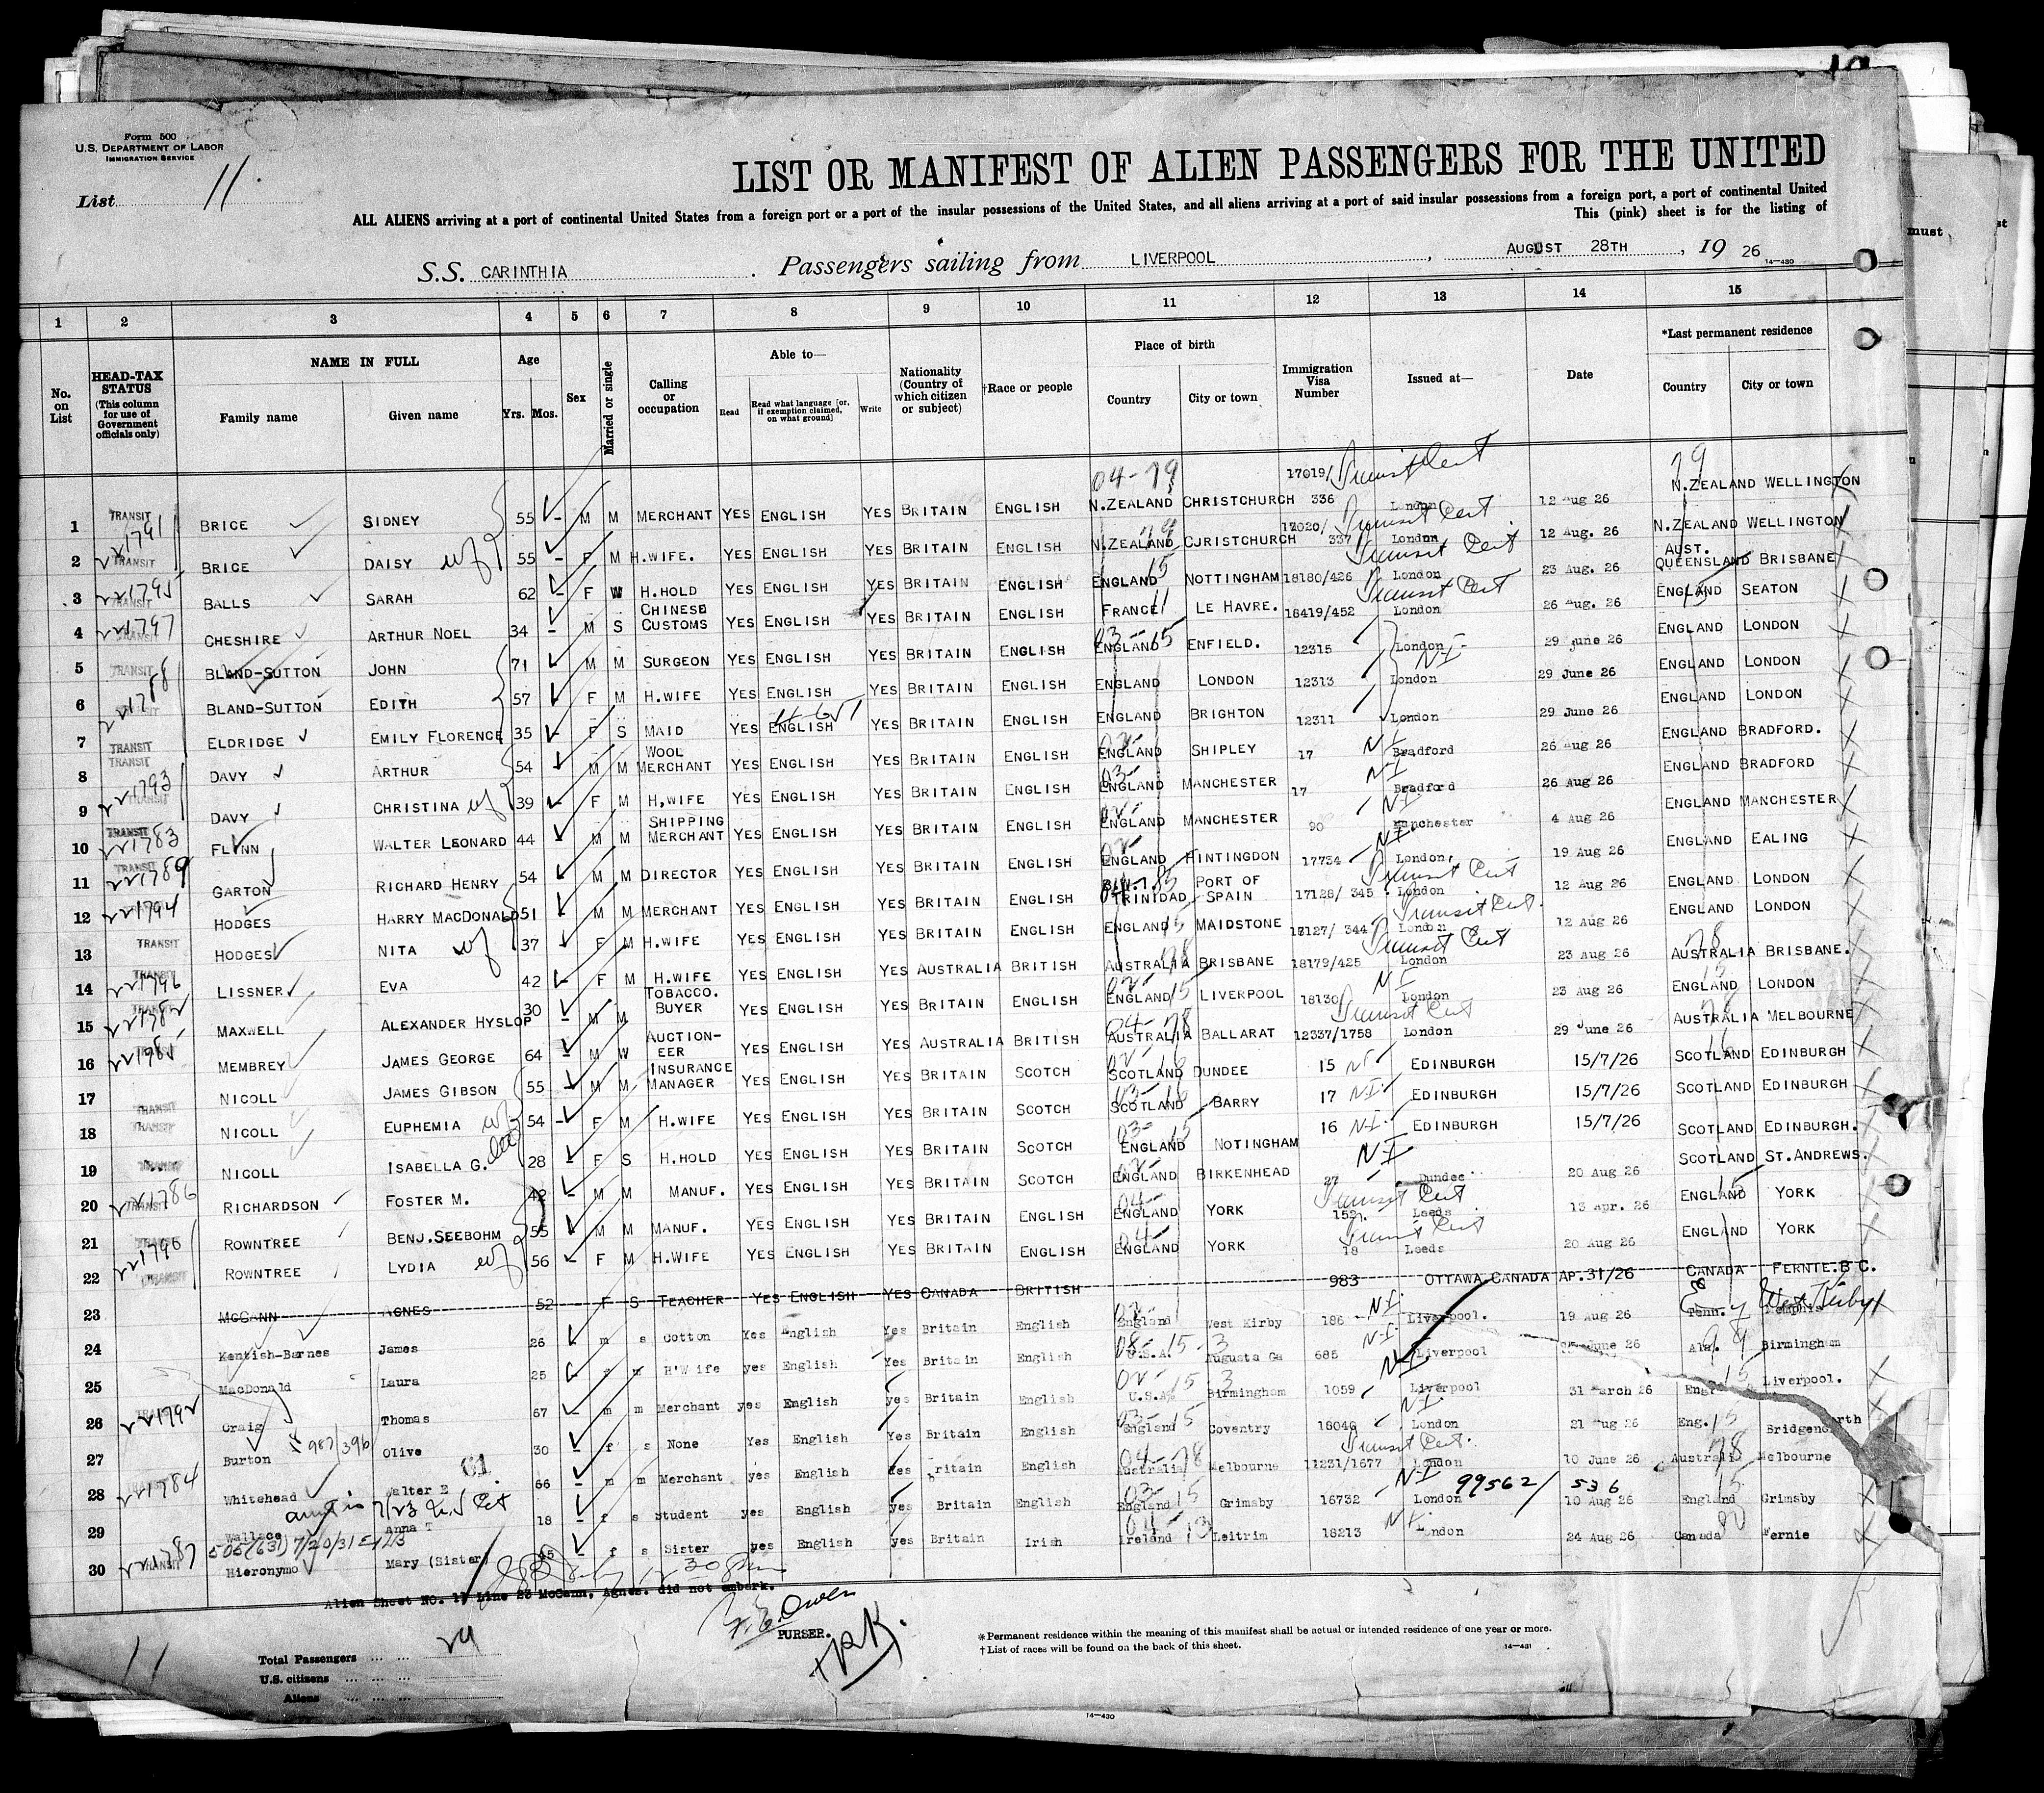 Form 500
U.S. DEPARTMENT OF LABOR
IMMIGRATION SERVICE
List 11.
LIST OR MANIFEST OF ALIEN PASSENGERS FOR THE UNITED
ALL ALIENS arriving at a port of continental United States from a foreign port or a port of the insular possessions of the United States, and all aliens arriving at a port of said insular possessions from a foreign port, a port of continental United
This (pink) sheet is for the listing of
S.S. CARINTHIA. Passengers sailing from LIVERPOOL, AUGUST 28TH, 19 26
14-430
1 2 3 4 5 6 7 8 9 10 11 12 13 14 15
No. on List
HEAD-TAX STATUS (This column for use of Government officials only)
NAME IN FULL
Family name Given name
Age Yrs. Mos.
Sex
Married or single
Calling or occupation
Able to—
Read Read what language [or, if exemption claimed, on what ground] Write
Nationality (Country of which citizen or subject)
†Race or people
Place of birth
Country City or town
Immigration Visa Number
Issued at—
Date
*Last permanent residence
Country City or town
1 TRANSIT BRICE SIDNEY 55 – M M MERCHANT YES ENGLISH YES BRITAIN ENGLISH N.ZEALAND CHRISTCHURCH 17019/336 London Transit Cert 12 Aug 26 N.ZEALAND WELLINGTON
2 TRANSIT BRICE DAISY wf 55 – F M H.WIFE. YES ENGLISH YES BRITAIN ENGLISH N.ZEALAND CJRISTCHURCH 17020/337 London Transit Cert 12 Aug. 26 N.ZEALAND WELLINGTON
3 TRANSIT BALLS SARAH 62 – F W H.HOLD YES ENGLISH YES BRITAIN ENGLISH ENGLAND NOTTINGHAM 18180/426 London Transit Cert 23 Aug. 26 AUST. QUEENSLAND BRISBANE
4 TRANSIT CHESHIRE ARTHUR NOEL 34 – M S CHINESE CUSTOMS YES ENGLISH YES BRITAIN ENGLISH FRANCE LE HAVRE. 18419/452 London Transit Cert 26 Aug. 26 ENGLAND SEATON
5 TRANSIT BLAND-SUTTON JOHN 71 M M SURGEON YES ENGLISH YES BRITAIN ENGLISH ENGLAND ENFIELD. 12315 London 29 June 26 ENGLAND LONDON
6 TRANSIT BLAND-SUTTON EDITH 57 F M H.WIFE YES ENGLISH YES BRITAIN ENGLISH ENGLAND LONDON 12313 London 29 June 26 ENGLAND LONDON
7 TRANSIT ELDRIDGE EMILY FLORENCE 35 F S MAID YES ENGLISH YES BRITAIN ENGLISH ENGLAND BRIGHTON 12311 London 29 June 26 ENGLAND LONDON
8 TRANSIT DAVY ARTHUR 54 M M WOOL MERCHANT YES ENGLISH YES BRITAIN ENGLISH ENGLAND SHIPLEY 17 Bradford 26 Aug 26 ENGLAND BRADFORD.
9 TRANSIT DAVY CHRISTINA wf 39 F M H,WIFE YES ENGLISH YES BRITAIN ENGLISH ENGLAND MANCHESTER 17 Bradford 26 Aug 26 ENGLAND BRADFORD
10 TRANSIT FLYNN WALTER LEONARD 44 M M SHIPPING MERCHANT YES ENGLISH YES BRITAIN ENGLISH ENGLAND MANCHESTER 90 Manchester 4 Aug 26 ENGLAND MANCHESTER
11 TRANSIT GARTON RICHARD HENRY 54 M M DIRECTOR YES ENGLISH YES BRITAIN ENGLISH ENGLAND HINTINGDON 17734 London, 19 Aug 26 ENGLAND EALING
12 HODGES HARRY MACDONALD 51 M M MERCHANT YES ENGLISH YES BRITAIN ENGLISH B.W.I. TRINIDAD PORT OF SPAIN 17126/ 345 London Transit Cert 12 Aug 26 ENGLAND LONDON
13 TRANSIT HODGES NITA wf 37 F M H.WIFE YES ENGLISH YES BRITAIN ENGLISH ENGLAND MAIDSTONE 17127/ 344 London Transit Cert. 12 Aug 26 ENGLAND LONDON
14 TRANSIT LISSNER EVA 42 F M H.WIFE YES ENGLISH YES AUSTRALIA BRITISH AUSTRALIA BRISBANE 18179/425 London Transit Cert 23 Aug 26 AUSTRALIA BRISBANE.
15 TRANSIT MAXWELL ALEXANDER HYSLOP 30 – M M TOBACCO. BUYER YES ENGLISH YES BRITAIN ENGLISH ENGLAND LIVERPOOL 18130 London 23 Aug 26 ENGLAND LONDON
16 TRANSIT MEMBREY JAMES GEORGE 64 – M W AUCTION-EER YES ENGLISH YES AUSTRALIA BRITISH AUSTRALIA BALLARAT 12337/1758 London Transit Cert 29 June 26 AUSTRALIA MELBOURNE
17 NICOLL JAMES GIBSON 55 – M M INSURANCE MANAGER YES ENGLISH YES BRITAIN SCOTCH SCOTLAND DUNDEE 15 EDINBURGH 15/7/26 SCOTLAND EDINBURGH
18 TRANSIT NICOLL EUPHEMIA wf 54 – F M H.WIFE YES ENGLISH YES BRITAIN SCOTCH SCOTLAND BARRY 17 EDINBURGH 15/7/26 SCOTLAND EDINBURGH
19 TRANSIT NICOLL ISABELLA G. 28 – F S H.HOLD YES ENGLISH YES BRITAIN SCOTCH ENGLAND NOTINGHAM 16 EDINBURGH 15/7/26 SCOTLAND EDINBURGH.
20 TRANSIT RICHARDSON FOSTER M. 42 – M M MANUF. YES ENGLISH YES BRITAIN SCOTCH ENGLAND BIRKENHEAD 27 Dundee 20 Aug 26 SCOTLAND ST.ANDREWS.
21 TRANSIT ROWNTREE BENJ.SEEBOHM 55 M M MANUF. YES ENGLISH YES BRITAIN ENGLISH ENGLAND YORK 152 Leeds Transit Cert 13 Apr. 26 ENGLAND YORK
22 TRANSIT ROWNTREE LYDIA wf 56 F M H.WIFE YES ENGLISH YES BRITAIN ENGLISH ENGLAND YORK 18 Leeds Transit Cert 20 Aug 26 ENGLAND YORK
23 McGANN AGNES 52 F S TEACHER YES ENGLISH YES CANADA BRITISH 983 OTTAWA CANADA AP.31/26 CANADA FERNIE.B C.
24 Kentish-Barnes James 26 m s Cotton Yes English Yes Britain English England West Kirby 186 Liverpool. 19 Aug 26 Tenn. Memphis West Kirby
25 MacDonald Laura 25 f m H'Wife yes English Yes Britain English U.S.A. Augusta Ga 685 Liverpool June 26 Ala. Birmingham
26 TRANSIT Craig Thomas 67 – m m Merchant yes English yes Britain English U.S.A. Birmingham 1059 Liverpool 31 March 26 Eng. Liverpool.
27 Burton Olive 30 – f s None Yes English Yes Britain English England Coventry 18046 London 21 Aug 26 Eng. Bridgenorth
28 Whitehead Walter E 66 – m m Merchant yes English Yes ritain English Australia Melbourne 11231/1677 London Transit Cert. 10 June 26 Australia Melbourne
61
29 Wallace Anna T 18 – f s Student yes English yes Britain English England Grimsby 16732 London 10 Aug 26 England Grimsby
99562/536
30 TRANSIT Hieronymo Mary (Sister) – f s Sister yes English yes Britain Irish Ireland Leitrim 18213 London 24 Aug 26 Canada Fernie
Alien Sheet NO. 11 Line 23 McGann, Agnes. did not embark.
PURSER.
Total Passengers 29
U.S. citizens
Aliens
11
*Permanent residence within the meaning of this manifest shall be actual or intended residence of one year or more.
†List of races will be found on the back of this sheet.
14-431
14-430